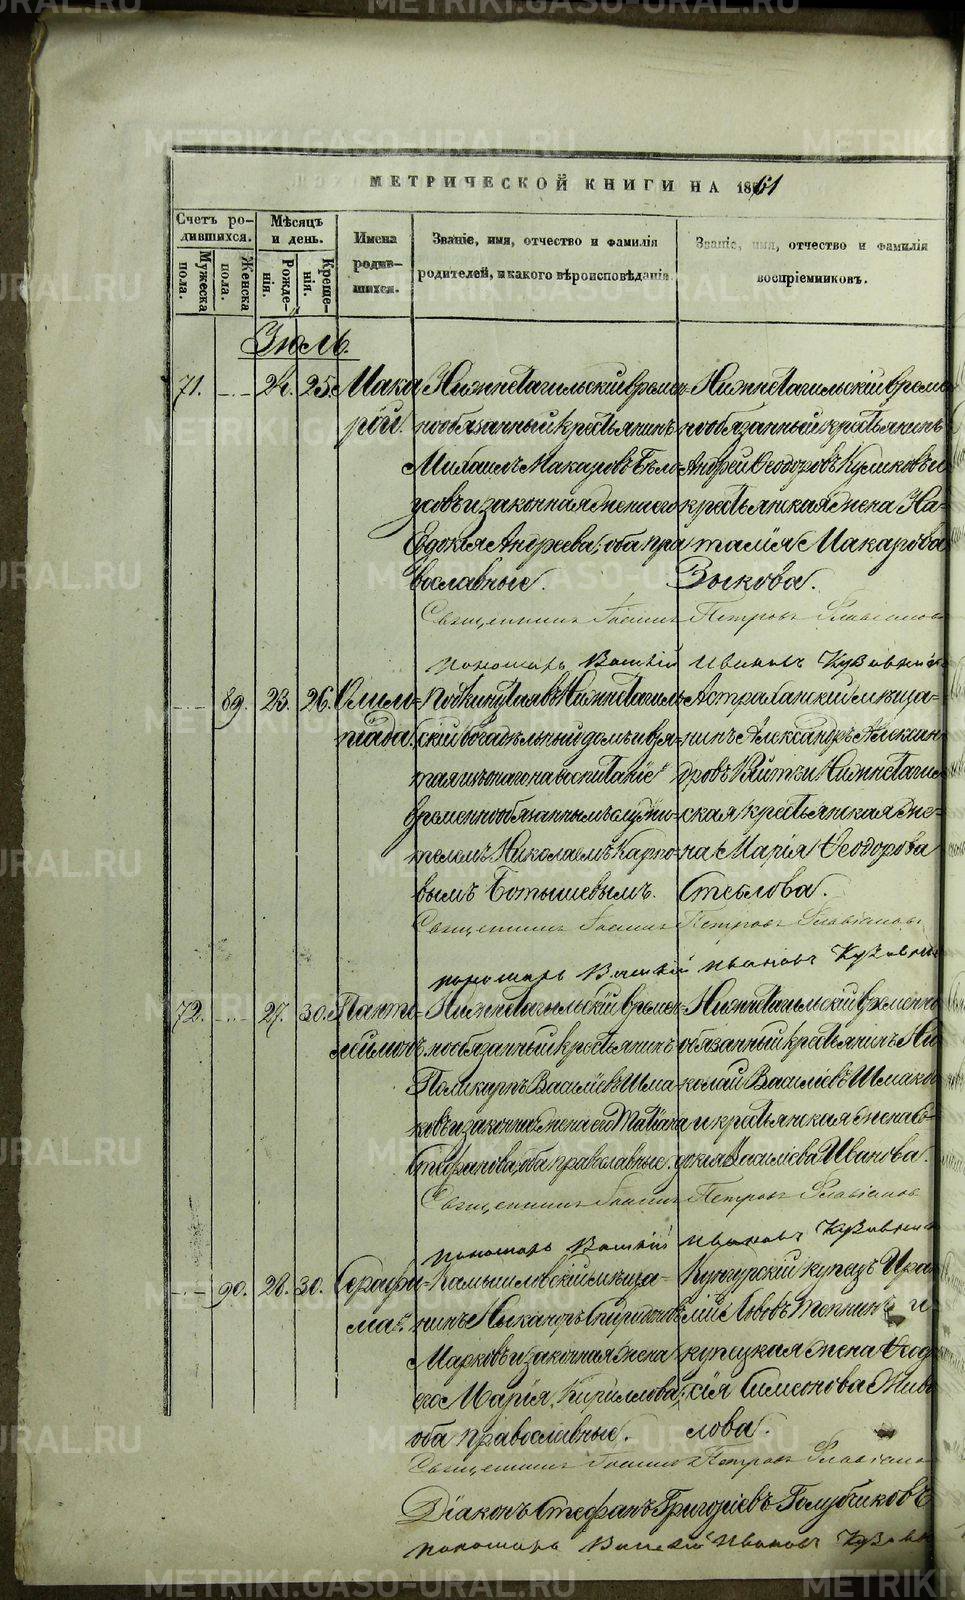 МЕТРИЧЕСКОЙ КНИГИ НА 1861
Счетъ ро-
дившихся.
Мужеска
пола.
Женска
пола.
Мѣсяцъ
и день.
Рожде-
нія.
Креще-
нія.
Имена
родив-
шихся.
Званіе, имя, отчество и фамилія
родителей, и какого вѣроисповѣданія.
Званіе, имя, отчество и фамилія
воспріемниковъ.
Іюль.
71. 24. 25.
Мака
рій.
Нижнетагильскій времен-
нообязанный крестьянинъ
Михаилъ Макаровъ Бѣло
усовъ и законная жена его
Евдокія Андреева; оба пра
вославные.
Нижнетагильскій време
нообязанный крестьянинъ
Андрей Ѳеодоровъ Куликовъ и
крестьянская жена На-
талія Макарова
Зыкова.
Священникъ Іоаннъ Петровъ Славниновъ
пономарь Василій Ивановъ
89. 23. 26.
Олим-
піада.
Подкинутая въ Нижнетагиль-
скій богадѣльный домъ и взя-
тая изъ онаго на воспитаніе
временнообязаннымъ служи-
телемъ Николаемъ Карпо-
вымъ Ботышевымъ.
Астраханскій мѣща-
нинъ Александръ Алексан
дровъ и Нижнетагил
ская крестьянская же-
на Марія Ѳеодорова
Стеблова.
Священникъ Іоаннъ Петровъ
пономарь Василій Ивановъ
72. 27. 30.
Панте-
лимонъ
Нижнетагильскій времен-
нообязанный крестьянинъ
Поликарпъ Васильевъ Шма
ковъ и законная жена его Татіана
Стефанова, оба православные.
Нижнетагильскій временно
обязанный крестьянинъ Ни
колай Василіевъ Шмако
и крестьянская жена Ев-
докія Василіева Иванова.
Священникъ Іоаннъ Петровъ
пономарь Василій Ивановъ
90. 28. 30.
Серафи-
ма.
Камышловскій мѣща-
нинъ Никаноръ Спиридоновъ
Марковъ и законная жена
его Марія Кириллова;
оба православные.
Кунгурскій купецъ Ира
лій Львовъ и
купецкая жена Ѳеодо
сія Симеонова Жив
лова.
Священникъ Іоаннъ Петровъ
Діаконъ Стефанъ Григоріевъ Голубчиковъ
пономарь Василій Ивановъ
METRIKI.GASO-URAL.RU